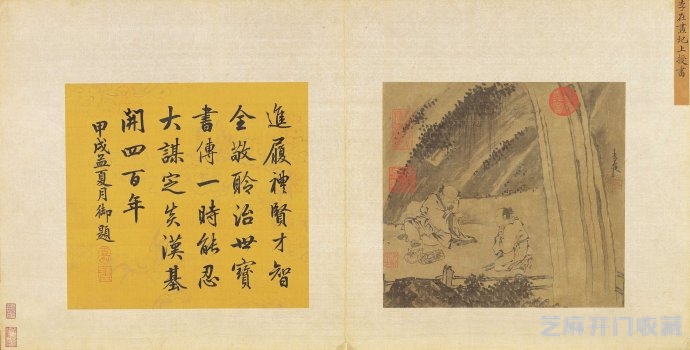 李在畫圯上授書
進履禮賢才智
全敬聆治世寶
書傳一時能忍
大謀定炎漢基
開四百年
甲戌孟夏月御題
李在
芝麻开门收藏